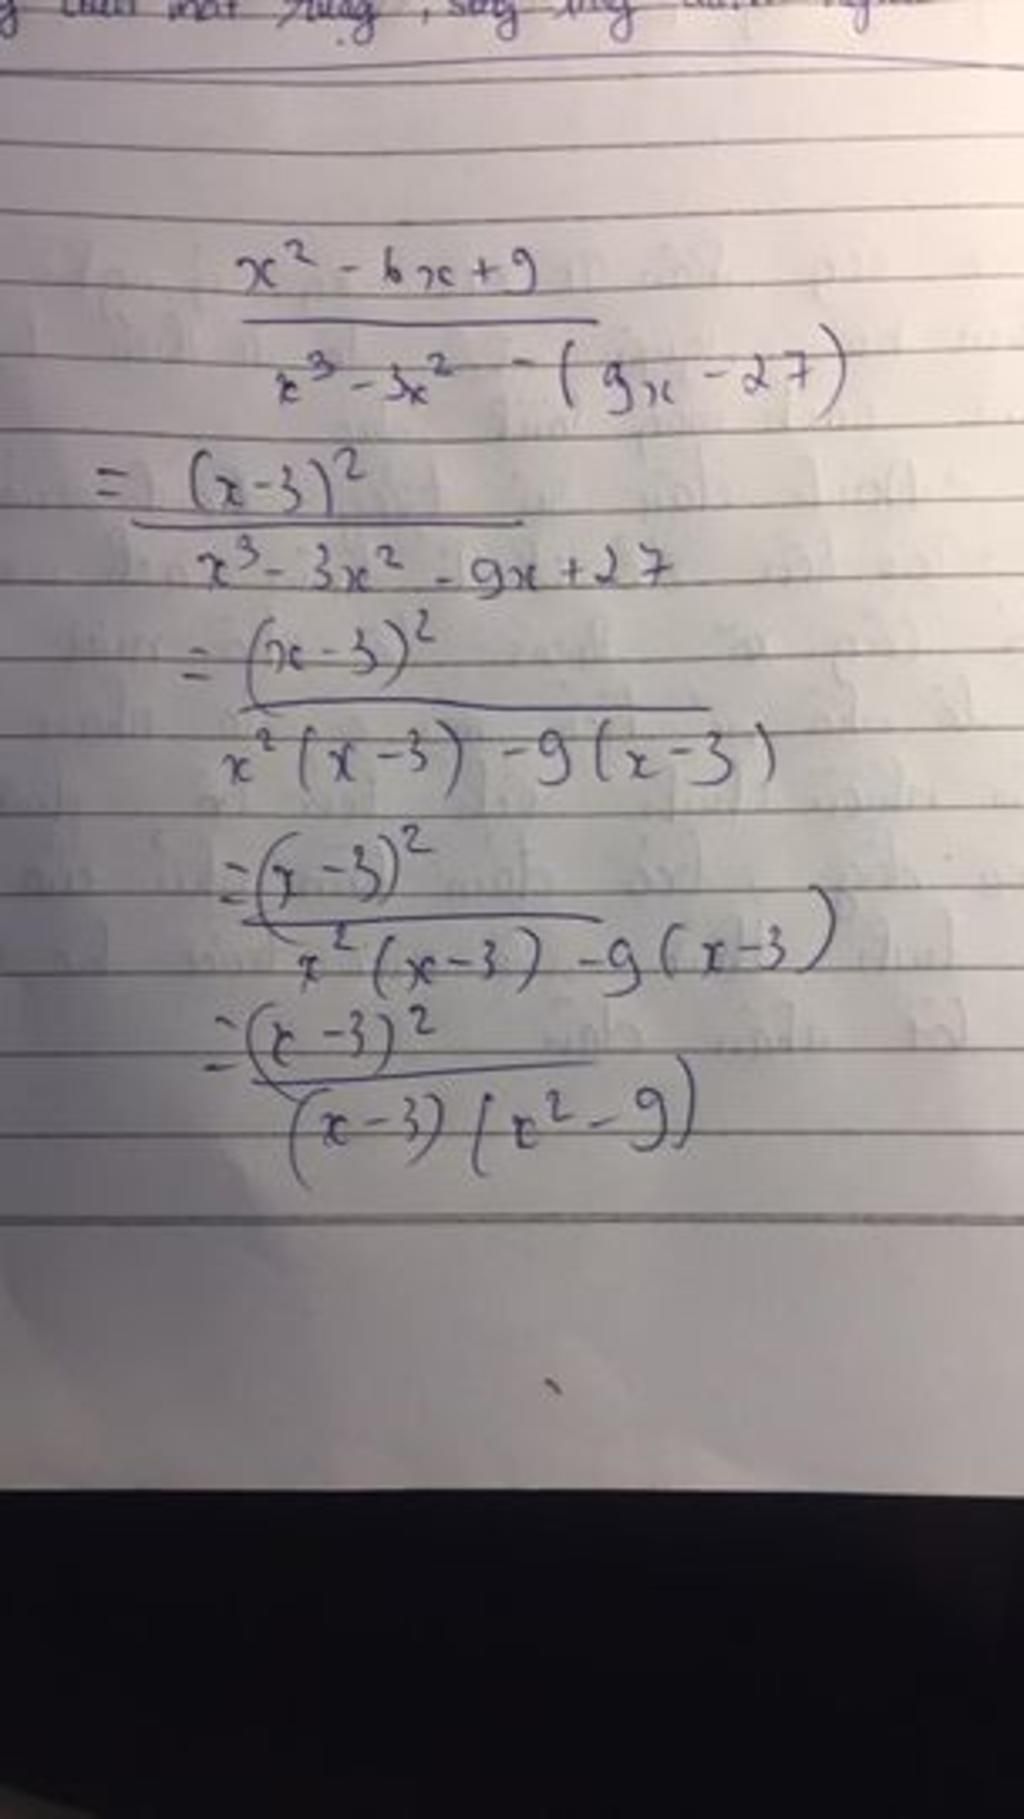 x² - 6x + 9
x³ - 3x² - (9x - 27)
= (x-3)²
x³ - 3x² - 9x + 27
= (x-3)²
x² (x-3) - 9 (x-3)
= (x-3)²
x² (x-3) - 9 (x-3)
= (x-3)²
(x-3) (x² - 9)